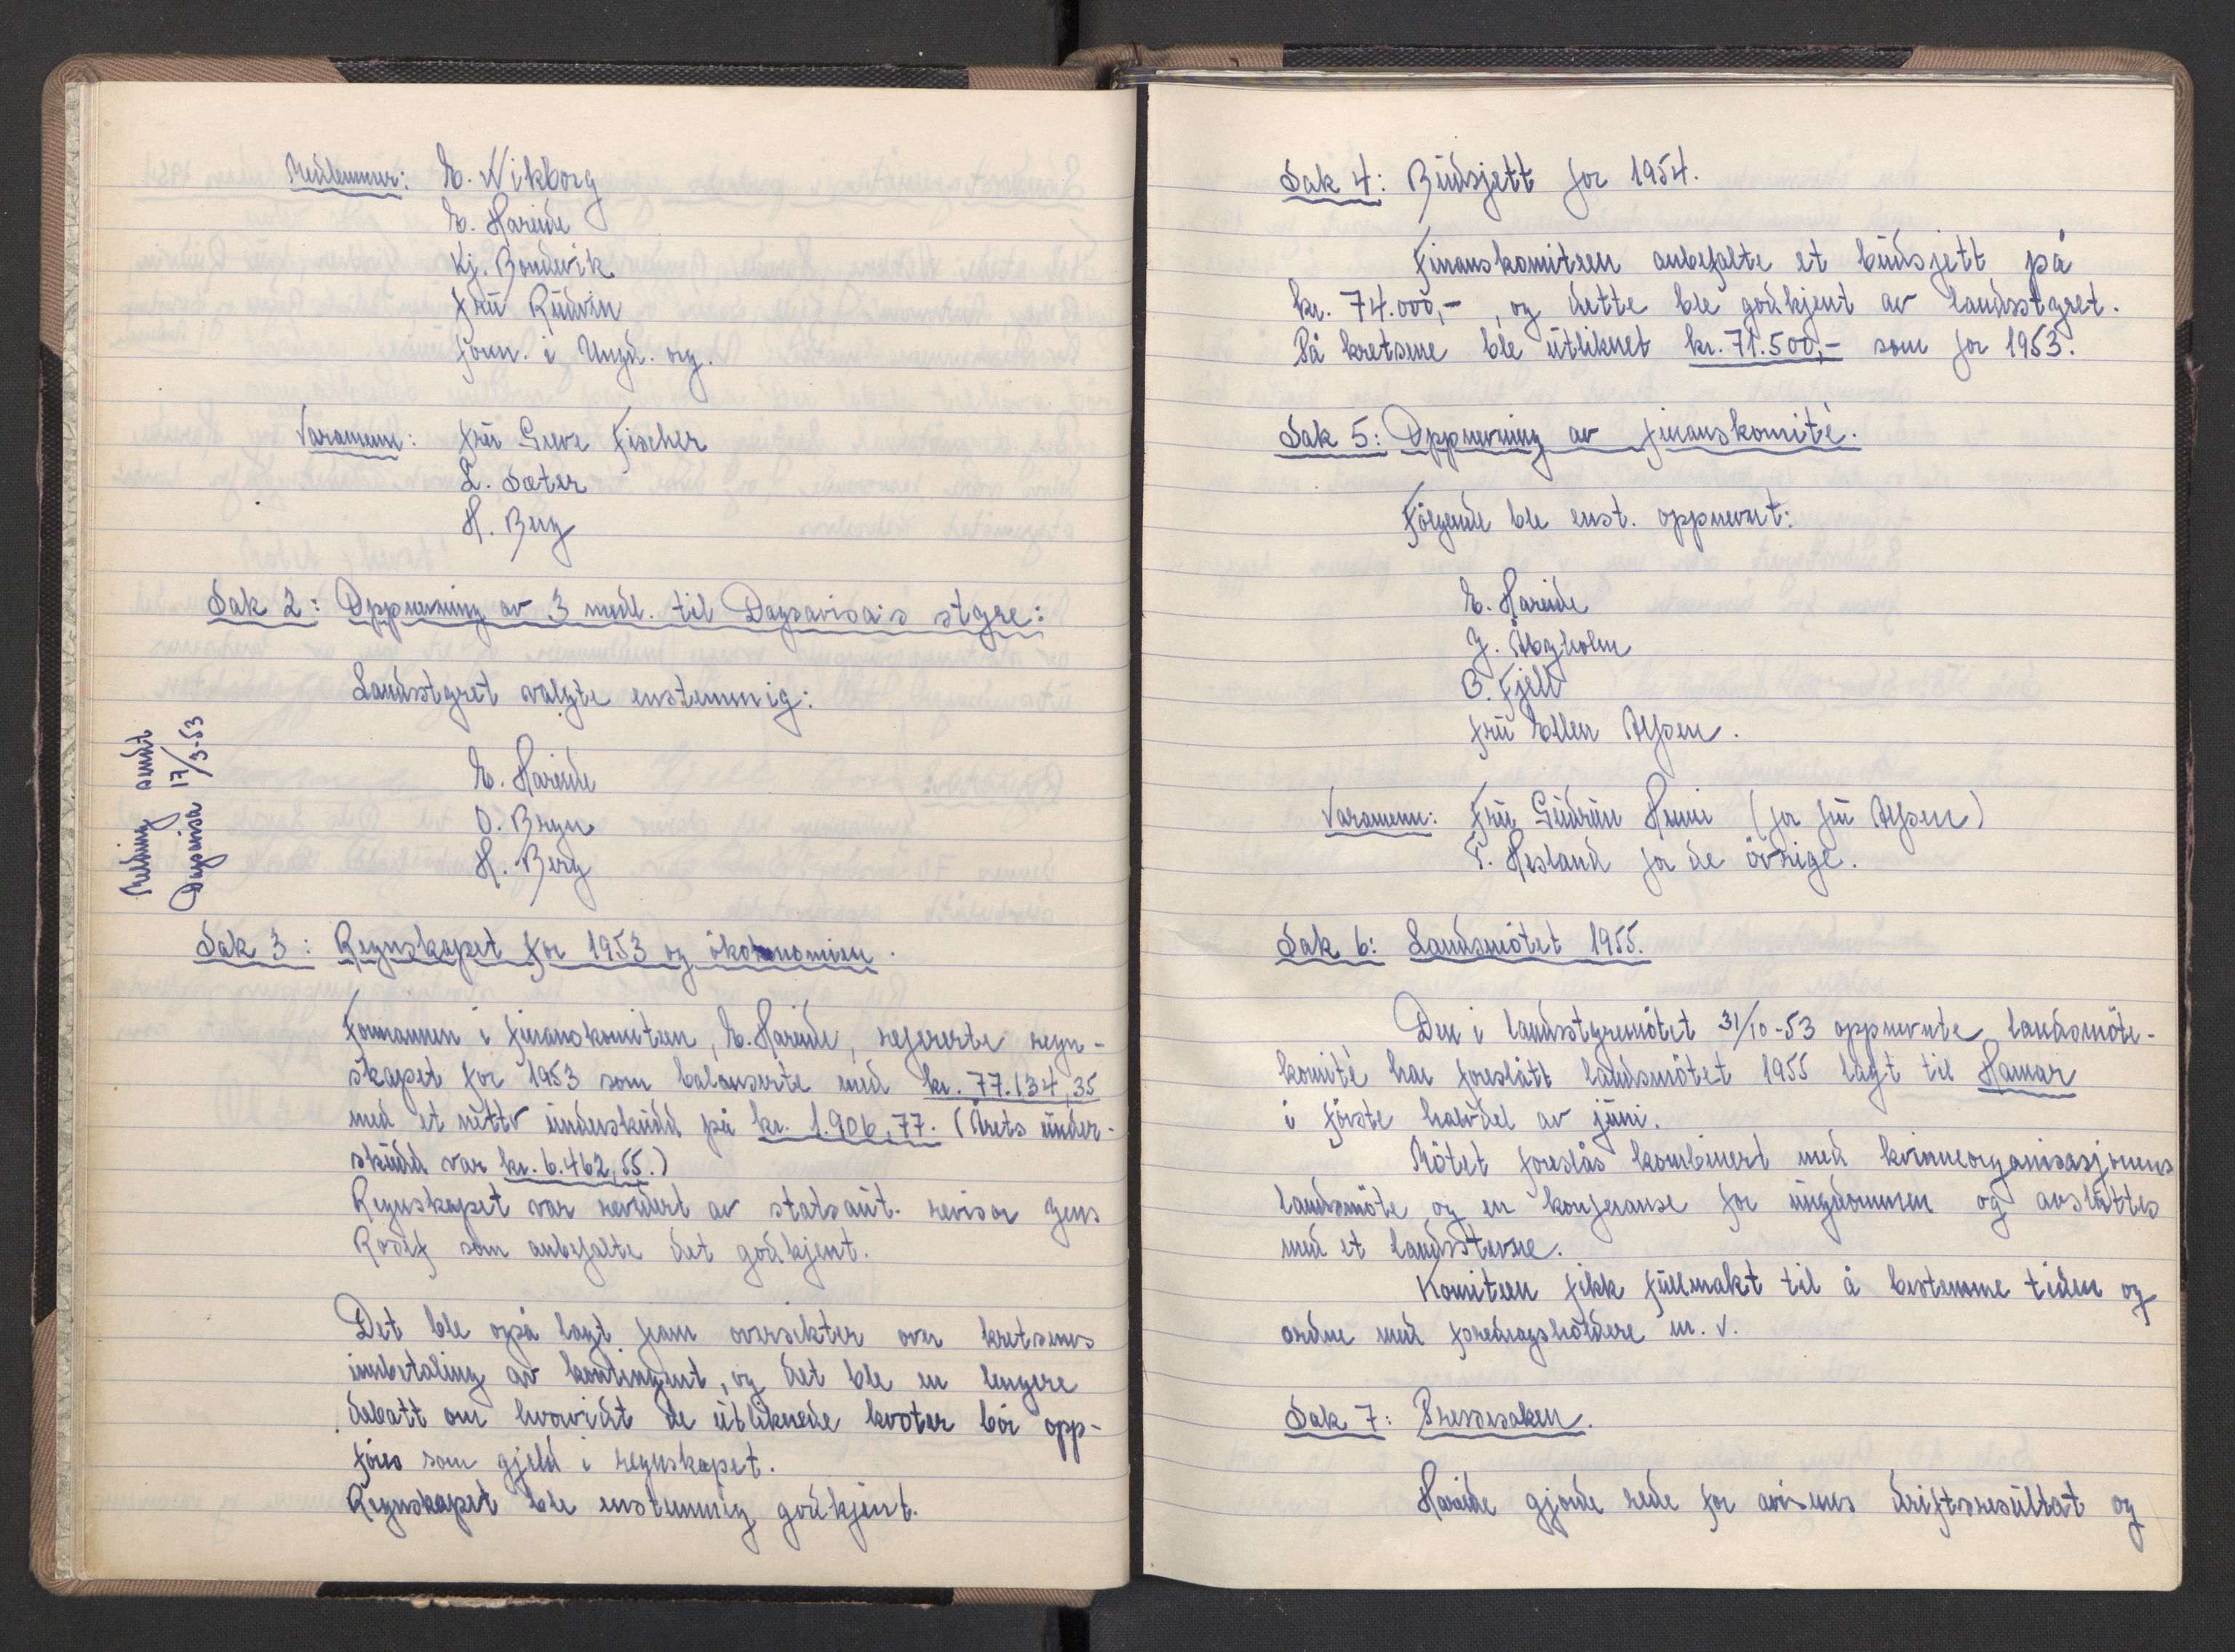 Medlemmer: E. Wikborg
E. Hareide
Kj. Bondevik
fru Rudvin
form. i Ungd. org.
Varamenn: fru Greve Fischer
L. Sæter
H. Berg
Sak 2: Oppnevning av 3 medl. til Dagsavisa's styre:
Landsstyret valgte enstemmig:
E. Hareide
O. Bryn
H. Berg
Melding sendt
Dagsavisa 17/3-53
Sak 3: Regnskapet for 1953 og økonomien.
Formannen i finanskomiteen, E. Hareide, refererte regn-
skapet for 1953 som balanserte med kr. 77.134,35
med et netto underskudd på kr. 1.906,77. (Årets under-
skudd var kr. 6.462,55.)
Regnskapet var revidert av statsaut. revisor Jens
Rodef som anbefalte det godkjent.
Det ble også lagt fram oversikter over kretsenes
innbetaling av kontingent, og det ble en lengere
debatt om hvorvidt de utliknede kvoter bör opp-
föres som gjeld i regnskapet.
Regnskapet ble enstemmig godkjent.
Sak 4: Budsjett for 1954.
Finanskomiteen anbefalte et budsjett på
kr. 74.000,-, og dette ble godkjent av landsstyret.
På kretsene ble utliknet kr. 71.500,- som for 1953.
Sak 5: Oppnevning av finanskomité.
Fölgende ble enst. oppnevnt:
E. Hareide
J. Åbyholm
O. Fjell
fru Ellen Alfsen.
Varamenn: Fru Gudrun (for fru Alfsen)
T. Hesland for de övrige.
Sak 6: Landsmötet 1955.
Den i landsstyremötet 31/10-53 oppnevnte landsmöte-
komité har foreslått landsmötet 1955 lagt til Hamar
i förste halvdel av juni.
Mötet foreslås kombinert med kvinneorganisasjonens
landsmöte og en konferanse for ungdommen og avsluttes
med et landsstevne.
Komiteen fikk fullmakt til å bestemme tiden og
ordne med foredragsholdere m. v.
Sak 7: Pressesaken.
Hareide gjorde rede for avisenes driftsresultat og